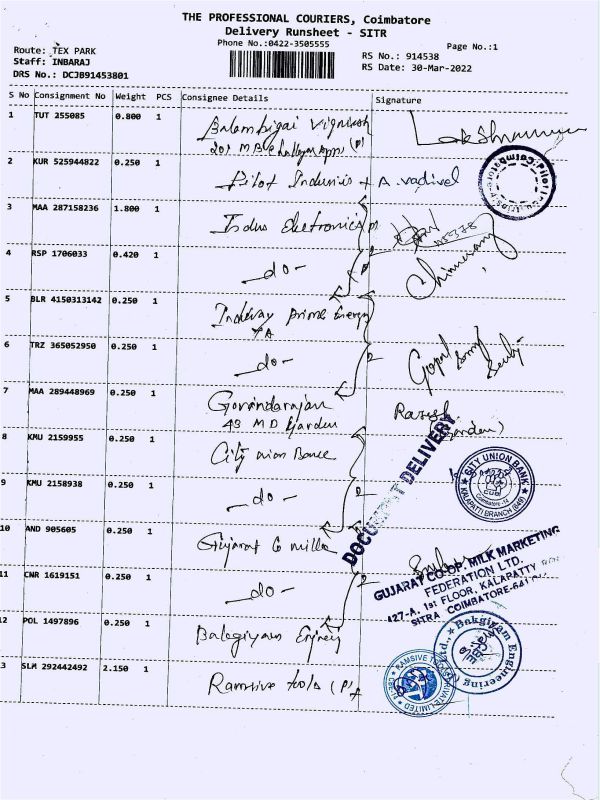 THE PROFESSIONAL COURIERS, Coimbatore
Delivery Runsheet - SITR
Phone No.:0422-3505555
Page No.:1
Route: TEX PARK
Staff: INBARAJ
DRS No.: DCJB91453801
RS No.: 914538
RS Date: 30-Mar-2022
S No Consignment No Weight PCS Consignee Details Signature
1 TUT 255085 0.800 1 Balambigai Vignesh
201 M B
2 KUR 525944822 0.250 1 Pilot A. vadivel
3 MAA 287158236 1.800 1 Indus Electronics
4 RSP 1706033 0.420 1 -do-
5 BLR 4150313142 0.250 1 prime Energy
6 TRZ 365052950 0.250 1 -do- Gopal
7 MAA 289448969 0.250 1 Govindarajan
43 M D Garden
(Garden)
8 KMU 2159955 0.250 1 City union
9 KMU 2158938 0.250 1 -do-
DOCUMENT DELIVERY
CITY UNION BANK
KALAPATTI BRANCH (649)
Coimbatore-14
10 AND 905605 0.250 1 Gujarat Co
11 CNR 1619151 0.250 1 -do-
GUJARAT CO-OP. MILK MARKETING
FEDERATION LTD.
427-A, 1st FLOOR, KALAPATTY
SITRA COIMBATORE-641
12 POL 1497896 0.250 1 Balagiyam
Bakgiyam Engineering
3 SLM 292442492 2.150 1 Ramsive tools (P)
RAMSIVE TOOLS PRIVATE LIMITED